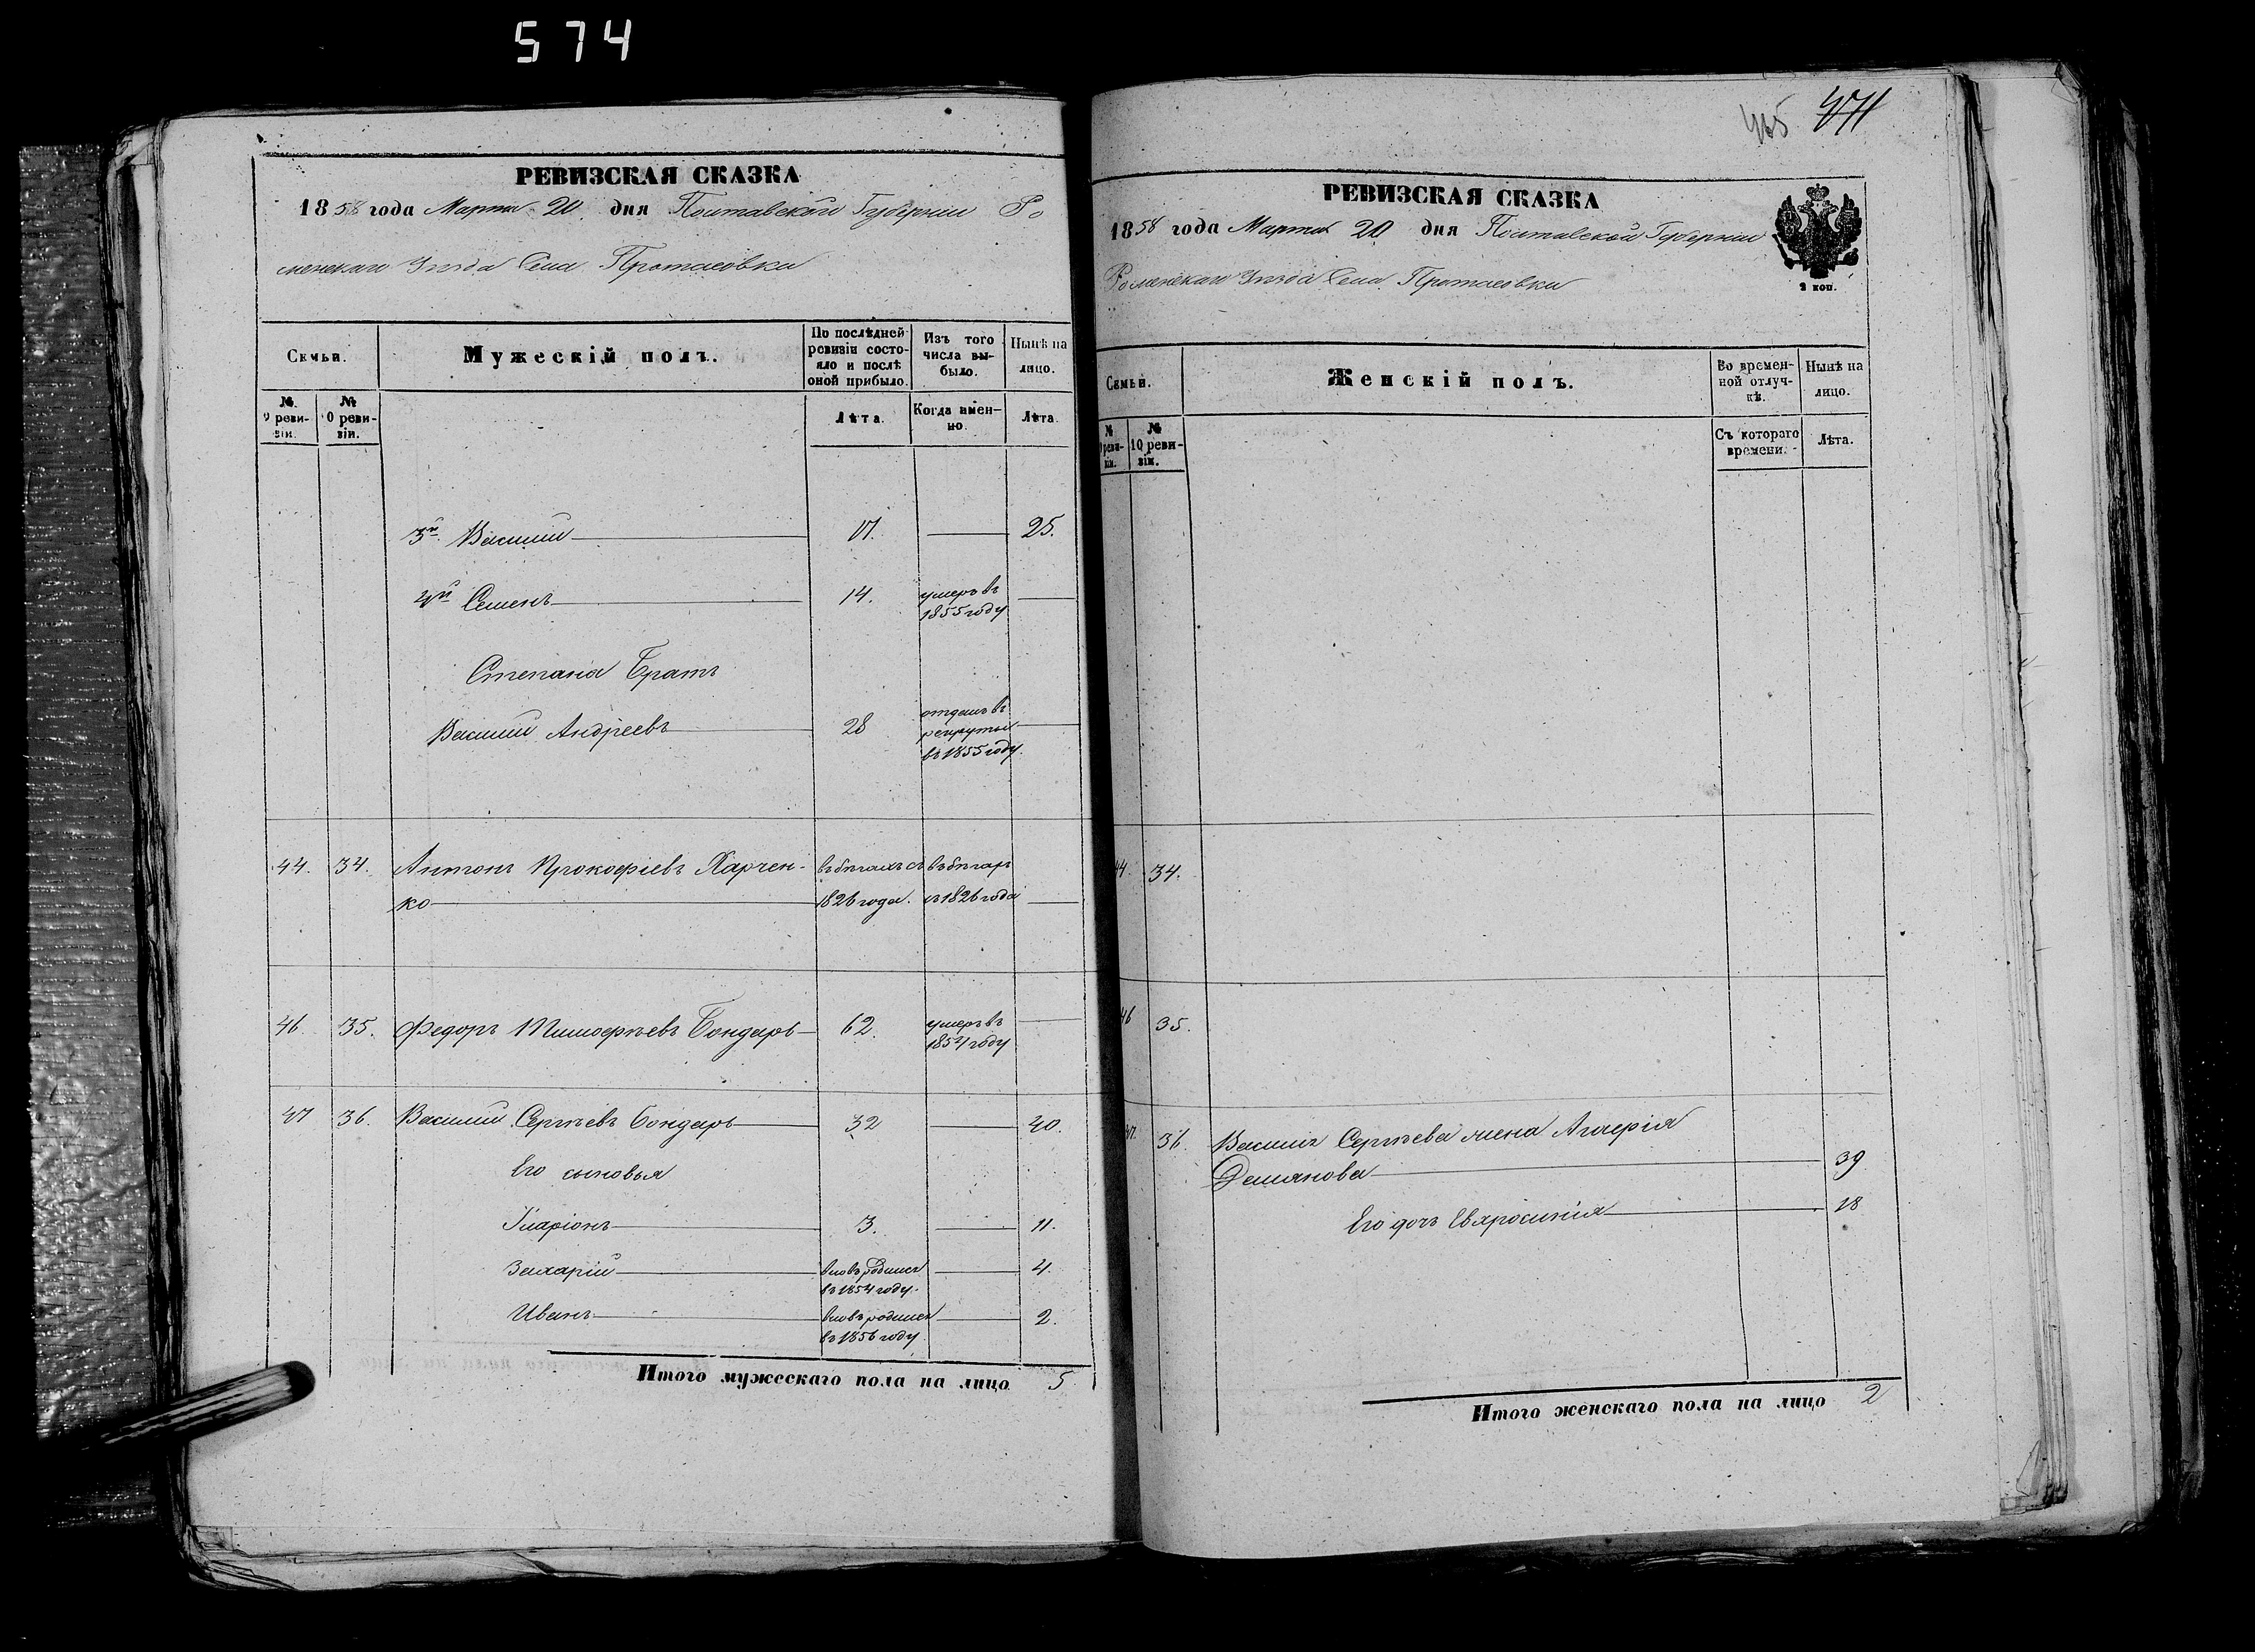 574
РЕВИЗСКАЯ СКАЗКА
1858 года Марта 20 дня Полтавской Губерніи Ро
менскаго Уѣзда Села Протасовки
Семьи.
Мужескій полъ.
По послѣдней ревизіи состо-
яло и послѣ оной прибыло.
Изъ того числа вы-
было.
Нынѣ на лицо.
№ 9 реви-
зіи.
№ 10 реви-
зіи.
Лѣта.
Когда имен-
но.
Лѣта.
3й Василій 17. 25.
4й Семенъ 14. умеръ въ
1855 году
Степана Братъ
Василій Андреевъ 28 отданъ въ
рекруты
въ 1855 году.
44. 34. Антонъ Прокофіевъ Харчен-
ко
въ бѣгахъ съ
1826 года.
въ бѣгахъ
съ 1826 года
46 35. Федоръ Тимофѣевъ Бондарь 62. умеръ въ
1854 году
47 36. Василий Сергѣевъ Бондарь 32 40.
Его сыновья
Иларіонъ 3. 11.
Захарій вновь родился
въ 1854 году. 4.
Иванъ вновь родился
въ 1856 году. 2.
Итого мужескаго пола на лицо 5
465 471
РЕВИЗСКАЯ СКАЗКА
1858 года Марта 20 дня Полтавской Губерніи
Роменскаго Уѣзда Села Протасовки
2 коп.
Семьи.
Женскій полъ.
Во времен-
ной отлуч-
кѣ.
Нынѣ на лицо.
№ 9 реви-
зіи.
№ 10 реви-
зіи.
Съ котораго времени.
Лѣта.
44. 34.
46 35.
47. 36. Василія Сергѣева жена
Демянова 39
Его дочь Евфросинія 18
Итого женскаго пола на лицо 2